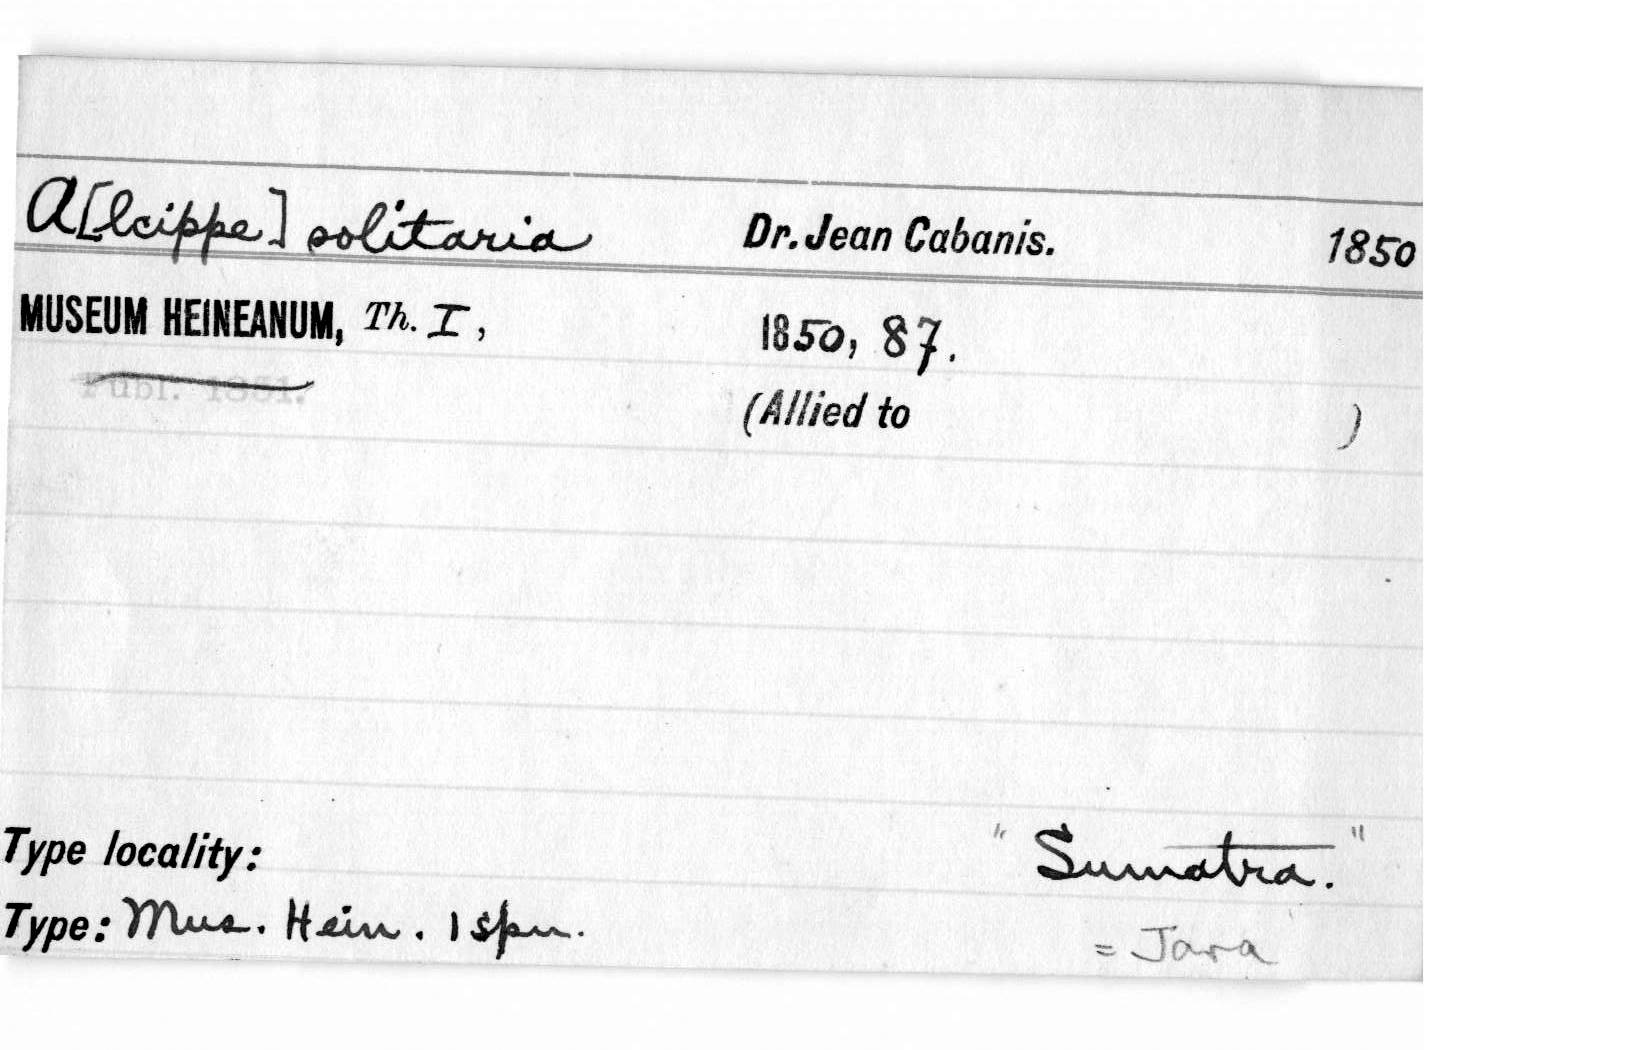 A[lcippe] solitaria Dr. Jean Cabanis. 1850
MUSEUM HEINEANUM, Th. I, 1850, 87.
Publ. 1851. (Allied to )
Type locality: "Sumatra."
Type: Mus. Hein. 1 spn. = Java